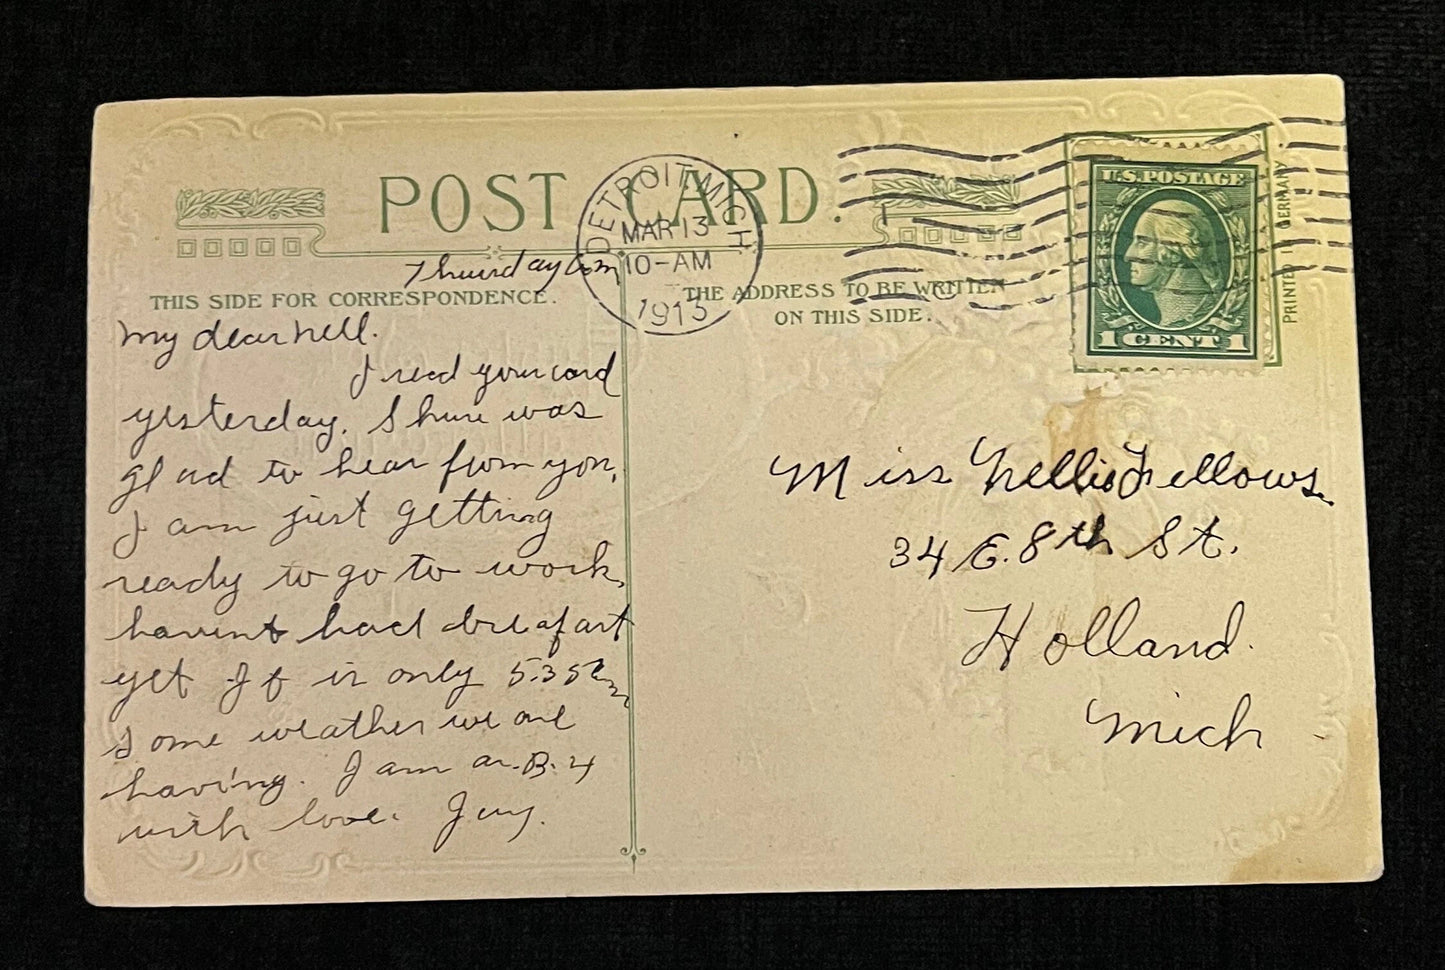 POST CARD.
DETROIT, MICH
MAR 13
10-AM
1913
U.S. POSTAGE
1 CENT 1
PRINTED IN GERMANY
THIS SIDE FOR CORRESPONDENCE.
THE ADDRESS TO BE WRITTEN
ON THIS SIDE.
Thursday
My dear Nell.
I recd your card
yesterday. Shure was
glad to hear from you.
I am just getting
ready to go to work.
havent had breafast
yet If is only 5.35
some weather we are
having. I am as. B. 4
with love. Guy.
Miss Nellie Fellows.
34 E. 8th St.
Holland.
Mich